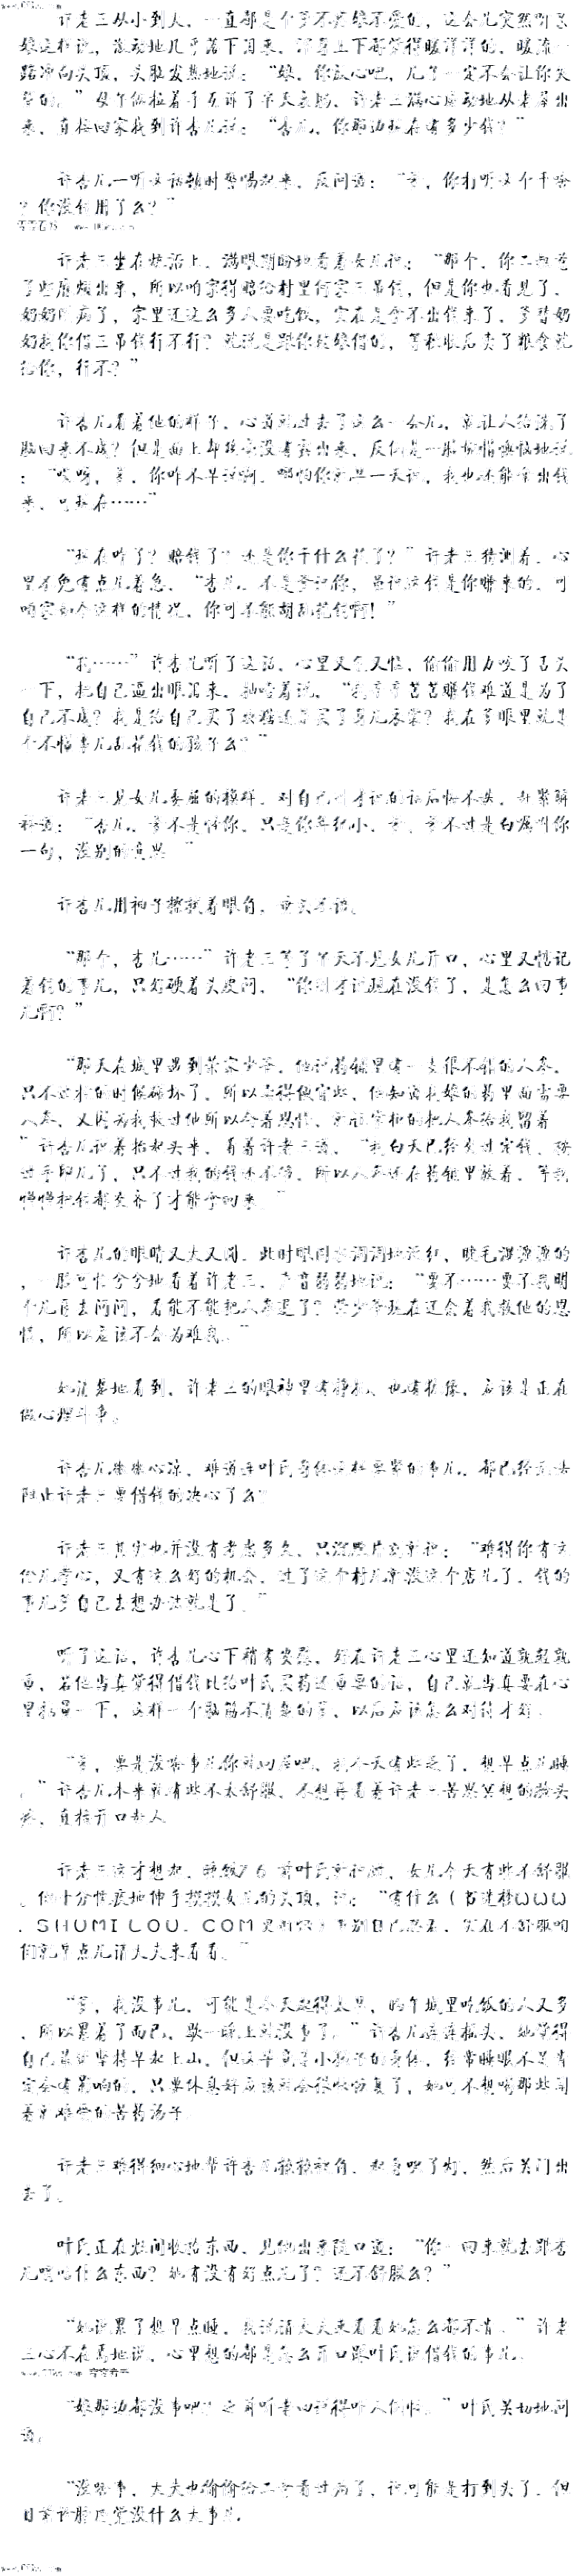 许老三从小到大，一直都是个爹不疼娘不爱的，这会儿突然听
娘这样说，激动地几乎落下泪来，浑身上下都觉得暖洋洋的，暖流一
路冲向头顶，头脑发热地说：“娘，你放心吧，儿子一定不会让你失
望的。”母子俩拉着手互诉了半天衷肠，许老三满心感动地从老屋出
来，直接回家找到许杏儿说：“杏儿，你那边现在有多少钱？”
许杏儿一听这话顿时警惕起来，反问道：“爹，你打听这个干啥
？你没钱用了么？”
许老三坐在炕沿上，满眼期盼地看着女儿说：“那个，你二叔惹
了些麻烦出来，所以咱家得赔给村里何家三吊钱，但是你也看见了，
奶奶病了，家里还这么多人要吃饭，实在是拿不出钱来了，爹替奶
奶找你借三吊钱行不行？就说是跟你娘借的，等秋收后卖了粮食就
给你，行不？”
许杏儿看着他的样子，心道就过去了这么一会儿，就让人给洗了
脑回来不成？但是面上却丝毫没有露出来，反倒是一脸懊恼地说
：“哎呀，爹，你咋不早说啊，哪怕你早一天说，我也还能拿出钱
来，可现在……”
“现在咋了？赔钱了？还是你干什么花了？”许老三猜测着，心
里不免有点儿着急，“杏儿，不是爹说你，虽说这钱是你赚来的，可
咱家如今这样的情况，你可不能胡乱花钱啊！”
“我……”许杏儿听了这话，心里又气又恼，偷偷用力咬了舌头
一下，把自己逼出眼泪来，抽噎着说，“我辛辛苦苦赚钱难道是为了
自己不成？我是给自己买了衣裳还是买了花儿朵儿？我在爹眼里就是
个不懂事儿乱花钱的孩子么？”
许老三见女儿委屈的模样，对自己刚才说的话后悔不迭，赶紧解
释道：“杏儿，爹不是怪你，只是你年纪小，爹、爹不过是白嘱咐你
一句，没别的意思。”
许杏儿用袖子擦拭着眼角，垂头不语。
“那个，杏儿……”许老三等了半天不见女儿开口，心里又惦记
着钱的事儿，只好硬着头皮问，“你刚才说现在没钱了，是怎么回事
儿啊？”
“那天在城里遇到荣家少爷，他说药铺里有一支很不错的人参，
只不过来的时候碰坏了，所以卖得便宜些，他知道我娘的药里面需要
人参，又因为我救过他所以念着恩情，就让掌柜的把人参给我留着。
”许杏儿说着抬起头来，看着许老三道，“我白天已经交过定钱、按
过手印儿了，只不过我的钱还不够，所以人参还在药铺里放着，等我
慢慢把钱都交齐了才能拿回来。”
许杏儿的眼睛又大又圆，此时眼周红润润地泛红，睫毛湿漉漉的
，一脸可怜兮兮地看着许老三，声音弱弱地说：“要不……要不我明
个儿再去问问，看能不能把人参退了？荣少爷现在还念着我救他的恩
情，所以应该不会为难我。”
她清楚地看到，许老三的眼神里有挣扎、也有犹豫，应该是正在
做心理斗争。
许杏儿微微心凉，难道连叶氏身体这样要紧的事儿，都已经无法
阻止许老三要借钱的决心了么？
许老三其实也并没有考虑多久，只沉默片刻就说：“难得你有这
份儿孝心，又有这么好的机会，过了这个村儿就没这个店儿了，钱的
事儿爹自己去想办法就是了。”
听了这话，许杏儿心下稍有安慰，好在许老三心里还知道孰轻孰
重，若他当真觉得借钱比给叶氏买药还重要的话，自己就当真要在心
里掂量一下，这样一个脑筋不清楚的爹，以后应该怎么对待才好。
“爹，要是没啥事儿你就回屋吧，我今天有些乏了，想早点儿睡
。”许杏儿本来就有些不太舒服，不想再看着许老三苦思冥想的脸头
疼，直接开口赶人。
许老三这才想起，晚饭前叶氏就说过，女儿今天有些不舒服
，他十分愧疚地伸手摸摸女儿的头顶，说：“有什么（书迷楼ＷＷＷ
．ＳＨＵＭＩＬＯＵ．ＣＯＭ更新快）事别自己忍着，实在不舒服咱
们就早点儿请大夫来看看。”
“爹，我没事儿，可能是今天起得太早，晌午城里吃饭的人又多
，所以累着了而已，歇一晚上就没事了。”许杏儿连连摇头，她觉得
自己最近坚持早起上山，但这毕竟是小孩子的身体，经常睡眠不足肯
定会有影响的，只要休息好应该就会很快恢复了，她可不想喝那些闻
着就难受的苦药汤子。
许老三难得细心地帮许杏儿掖掖被角，起身吹了灯，然后关门出
去了。
叶氏正在灶间收拾东西，见他出来随口道：“你一回来就去跟杏
儿嘀咕什么东西？她有没有好点儿了？还不舒服么？”
“她说累了想早点睡，我说请大夫来看看她怎么都不肯。”许老
三心不在焉地说，心里想的都是怎么开口跟叶氏说借钱的事儿。
“娘那边都没事吧？之前听老四说得吓人倒怪。”叶氏关切地问
道。
“没啥事，大夫也偷偷给二哥看过病了，说可能是打到头了，但
目前诊脉感觉没什么大事儿。